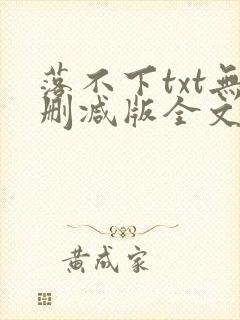 落不下txt無
刪減版全文
黄成家